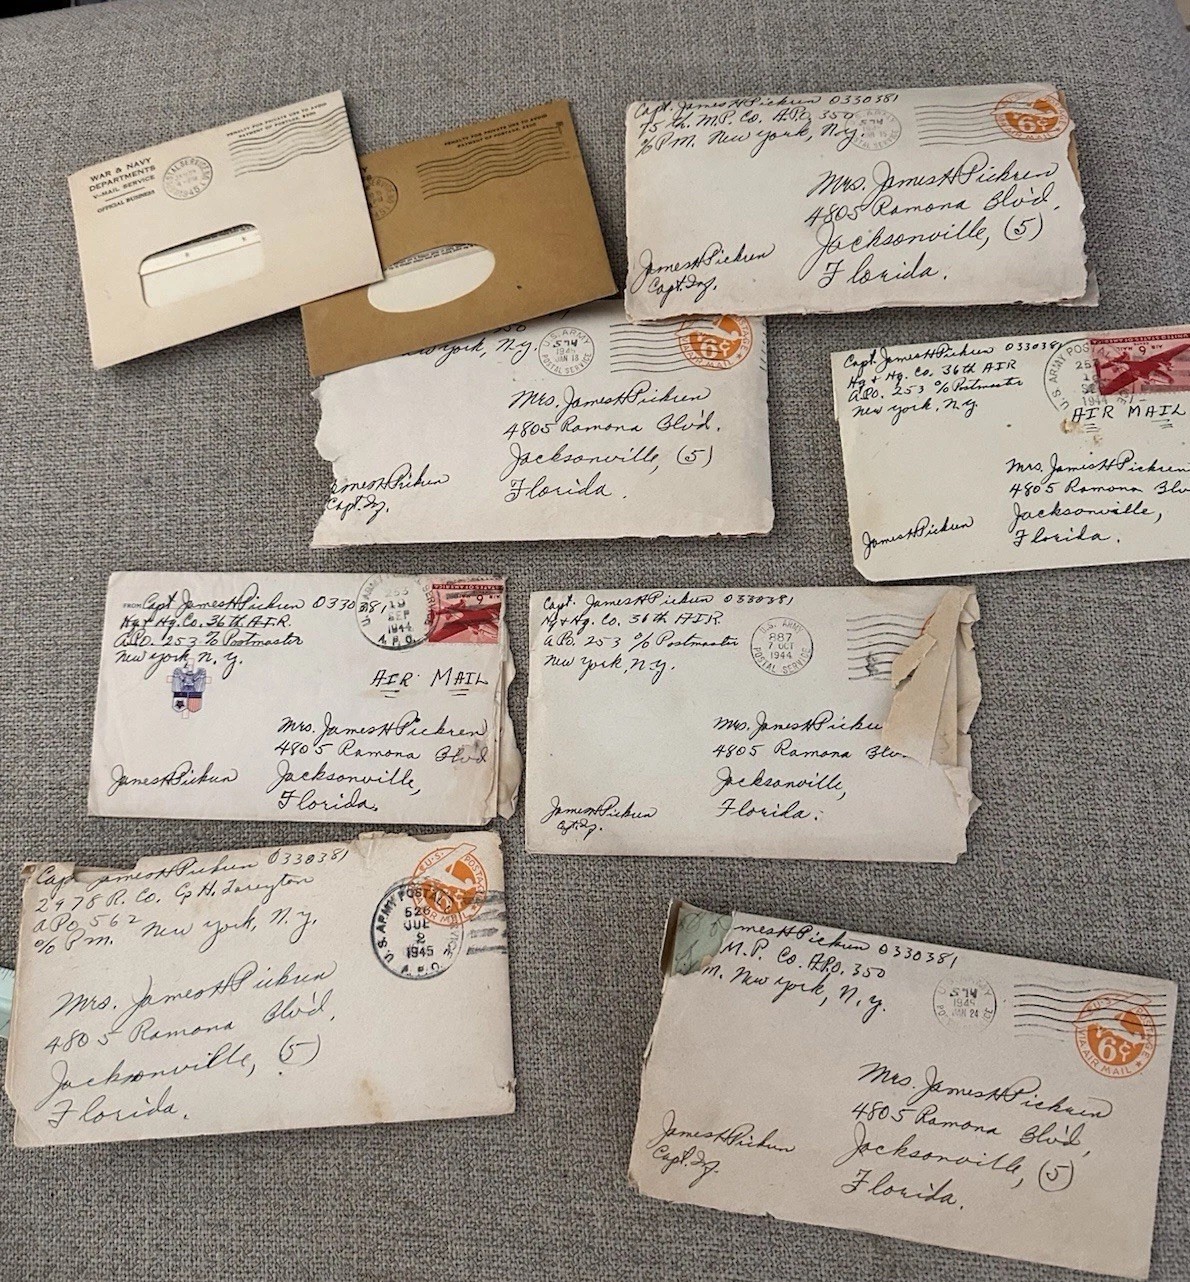 PENALTY FOR PRIVATE USE TO AVOID
PAYMENT OF POSTAGE, $300
WAR & NAVY
DEPARTMENTS
V-MAIL SERVICE
OFFICIAL BUSINESS
PENALTY FOR PRIVATE USE TO AVOID
PAYMENT OF POSTAGE, $300
Capt. James H Pickren 0330381
75 th. M.P. Co. A.P.O. 350
% P.M. New york, N.y.
6¢
Mrs. James H Pickren
4805 Ramona Blv'd.
Jacksonville, (5)
Florida.
James H Pickren
Capt. Inf.
350
New york, N.y.
U.S. ARMY
1945
JAN 18
POSTAL SERVICE
POSTAGE
6¢
VIA AIR MAIL
Mrs. James H Pickren
4805 Ramona Blvd.
Jacksonville, (5)
Florida.
James H Pickren
Capt. Inf.
Capt. James H Pickren 0330381
Hq & Hq. Co. 36th AIR
A.P.O. 253 % Postmaster
New york, N.y.
U.S. ARMY POSTAL
1944
UNITED STATES OF AMERICA
6
AIR MAIL
Mrs. James H Pickren
4805 Ramona Blv
Jacksonville,
Florida.
James H Pickren
FROM Capt. James H Pickren 0330381
Hq & Hq. Co. 36th A.I.R.
A.P.O. 253 % Postmaster
New york, N.y.
253
19
SEP
1944
A.P.O.
UNITED STATES OF AMERICA
6
AIR MAIL
Mrs. James H Pickren
4805 Ramona Blvd
Jacksonville,
Florida.
James H Pickren
Capt. James H Pickren 0330381
Hq & Hq. Co. 36th AIR
A.P.O. 253 % Postmaster
New york, N.y.
U.S. ARMY
887
7 OCT
1944
POSTAL SERVICE
Mrs. James H Picke
4805 Ramona Blv
Jacksonville,
Florida.
James H Pickren
Capt. Inf.
Capt James H Pickren 0330381
2978 R. Co. G.H. Tareyton
APO 562
% P.M. New york, N.y.
U.S. POSTAGE
6¢
U.S. ARMY POSTAL SERVICE
1945
A.P.O.
Mrs. James H Pickren
4805 Ramona Blv'd,
Jacksonville, (5)
Florida.
James H Pickren 0330381
M.P. Co. A.P.O. 350
M. New york, N.y.
1945
JAN 24
U.S. POSTAGE
6¢
VIA AIR MAIL
Mrs. James H Pickren
4805 Ramona Blv'd,
Jacksonville, (5)
Florida.
James H Pickren
Capt. Inf.